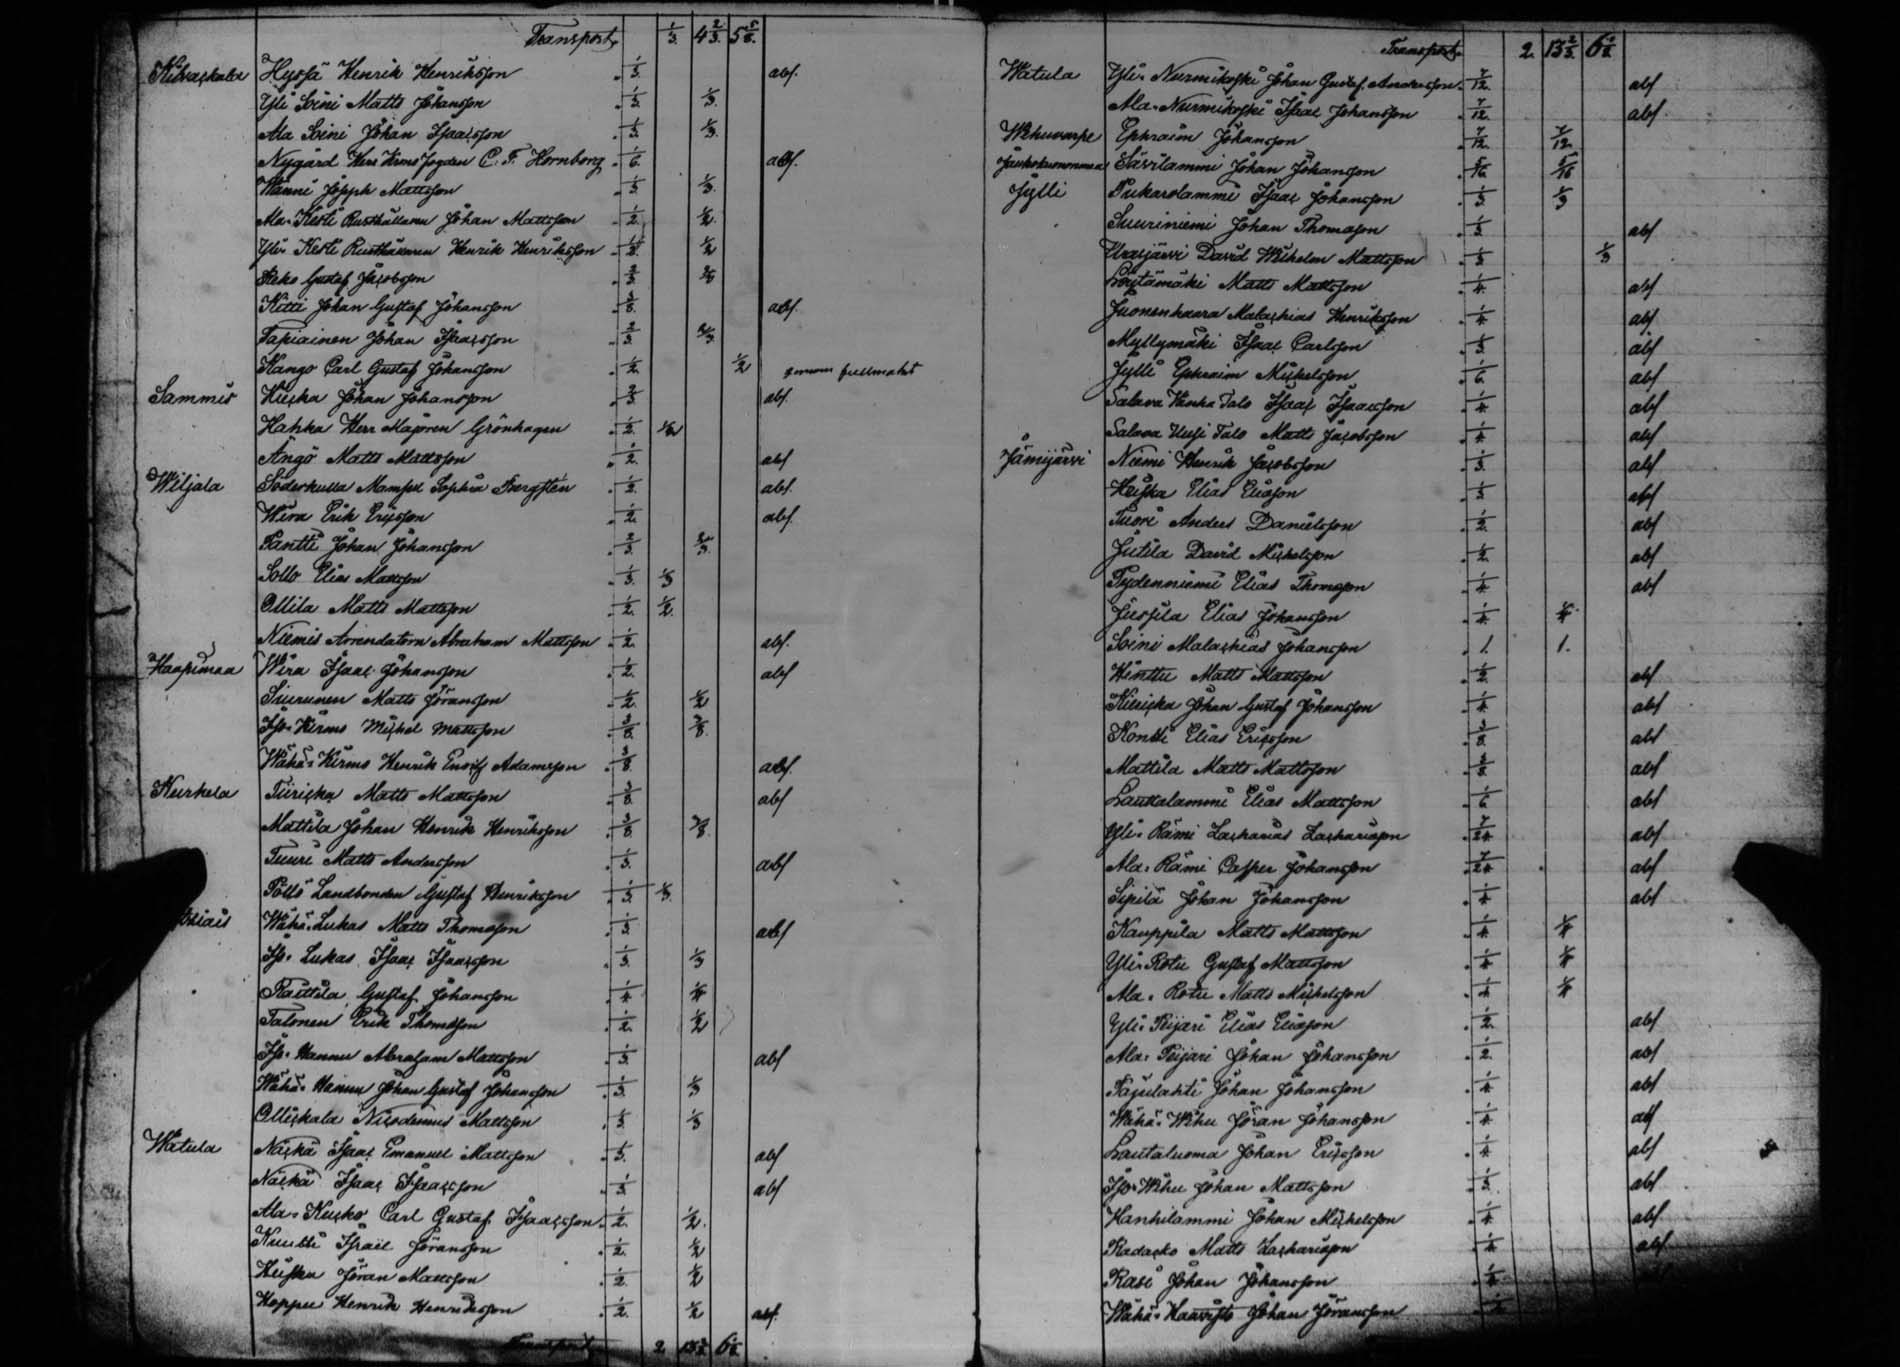 Transport 1/3. 4 2/3. 5 5/6.
Niinaskala Hyssä Henrik Henriksson 1/3. abs.
Yli Soini Matts Johansson 1/3. 1/3.
Ala Soini Johan Isaacsson 1/3. 1/3.
Nygård Herr C. F. Hornborg 1/6. abs.
Wänni Joseph Mattsson 1/3. 1/3.
Ala-Kesti Rusthållaren Johan Mattsson 1/2. 1/2.
Yli-Kesti Rusthållaren Henrik Henriksson 1/2. 1/2
Gustaf Jacobsson 2/3. 2/3
Kitti Johan Gustaf Johansson 3/8. abs.
Tapiainen Johan Isaacsson 2/3. 2/3.
Kango Carl Gustaf Johansson 1/2. 1/2 genom fullmakt
Sammis Kuska Johan Johansson 2/3. abs.
Hahka Herr Majoren Grönhagen 1/2. 1/2
Ängö Matts Mattsson 1/2. abs
Wiljala Söderkulla Mamsell Sophia Bergsten 1/2. abs.
Wira Erik Ericsson 1/2. abs.
Pantti Johan Johansson 2/3. 2/3.
Sollo Elias Mattsson 1/3. 1/3
Ollila Matts Mattsson 1/2. 1/2.
Niemis Arrendatorn Abraham Mattsson 1/2. abs.
Haapimaa Wira Isaac Johansson 1/2. abs
Siurunen Matts Göransson 1/2. 1/2
Iso-Kirmo Michel Mattsson 3/8. 3/8.
Wähä-Kirmo Henrik Gustaf Adamsson 3/8. abs.
Kurkela Tiiriska Matts Mattsson 3/8. abs
Mattila Johan Henrik Henriksson 3/8. 3/8.
Tuuri Matts Andersson 1/3. abs
Pöllö Landbonden Gustaf Henriksson 1/3. 1/3.
Wähä-Lukas Matts Thomasson 1/3. abs
Iso-Lukas Isaac Isaacsson 1/3. 1/3
Raittila Gustaf Johansson 1/4. 1/4
Talonen Erik Thomasson 1/2. 1/2
Iso-Hannu Abraham Mattsson 1/3. abs
Wähä-Hannu Johan Gustaf Johansson 1/3. 1/3
Olliskala Nicodemus Mattsson 1/3. 1/3
Watula Näskä Isaac Emanuel Mattsson 1/3. abs
Näskä Isaac Isaacsson 1/3. abs
Ala-Kusko Carl Gustaf Isaacsson 1/2. 1/2.
Knutti Israel Göransson 1/2. 1/2
Göran Mattsson 1/2. 1/2
Hoppu Henrik Henriksson 1/2. 1/2 abs.
Transport 2. 13 2/3. 6 1/3.
Transport. 2. 13 2/3. 6 1/3
Watula Yli-Nurmikoski Johan Gustaf Andersson 7/12. abs
Ala-Nurmikoski Isaac Johansson 7/12. abs
Wihuvarpe Ephraim Johansson 7/12. 7/12.
Savilammi Johan Johansson 5/16. 5/16
Jylli Pukarolammi Isaac Johansson 1/3. 1/3
Suuriniemi Johan Thomasson 1/3. abs
Urasjärvi David Wilhelm Mattsson 1/3. 1/3
Löytämäki Matts Mattsson 1/4. abs
Juonenhaara Malachias Henriksson 1/4. abs
Myllymäki Isaac Carlsson 1/3. abs
Jylli Ephraim Michelsson 1/6. abs
Salava Wanha Talo Isaac Isaacsson 1/4. abs
Salava Uusi Talo Matts Jacobsson 1/4. abs
Jämijärvi Niemi Henrik Jacobsson 1/3. abs
Heiska Elias Eliasson 1/3. abs
Tuori Anders Danielsson 1/2. abs
Jutila David Michelsson 1/2. abs
Pydenniemi Elias Thomasson 1/4. abs
Jussila Elias Johansson 1/4. 1/4.
Soini Malachias Johansson 1. 1.
Winttu Matts Mattsson 1/2. abs
Kiviska Johan Gustaf Johansson 1/4. abs
Kontti Elias Ericsson 3/8. abs
Mattila Matts Mattsson 3/8. abs
Lauttalammi Elias Mattsson 1/6. abs
Yli-Rämi Zacharias Zachariasson 7/24. abs
Ala-Rämi Casper Johansson 7/24. abs
Sipilä Johan Johansson 1/4. abs
Kauppila Matts Mattsson 1/4. 1/4
Yli-Rotu Gustaf Mattsson 1/4. 1/4
Ala-Rotu Matts Michelsson 1/4. 1/4
Yli-Peijari Elias Eliasson 1/2. abs
Ala-Peijari Johan Johansson 1/2. abs
Pajulahti Johan Johansson 1/4. abs
Wähä-Wihu Göran Johansson 1/4. abs
Lautaluoma Johan Ericsson 1/4. abs
Iso-Wihu Johan Mattsson 1/3. abs
Hanhilammi Johan Michelsson 1/4. abs
Radasko Matts Zachariasson 1/4. abs
Rasi Johan Johansson 1/4.
Wähä-Haavisto Johan Göransson